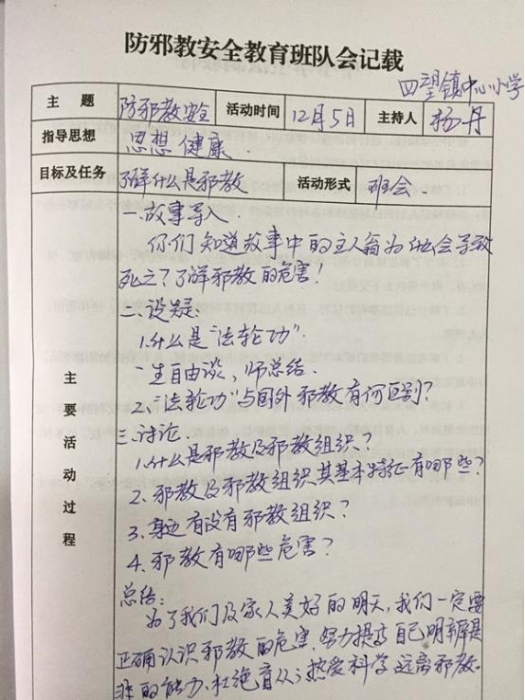 防邪教安全教育班队会记载
四望镇中心小学
主 题 防邪教安全 活动时间 12月5日 主持人 杨丹
指导思想 思想健康
目标及任务 了解什么是邪教 活动形式 班会.
主要活动过程
一.故事导入.
你们知道故事中的主人翁为什么会导致
死亡?了解邪教的危害!
二、设疑:
1.什么是"法轮功".
生自由谈,师总结.
2、"法轮功"与国外邪教有何区别?
三.讨论.
1.什么是邪教及邪教组织?
2.邪教及邪教组织其基本特征有哪些?
3.身边有没有邪教组织?
4.邪教有哪些危害?
总结:
为了我们及家人美好的明天,我们一定要
正确认识邪教的危害,努力提高自己明辨是
非的能力.杜绝盲从,热爱科学,远离邪教.